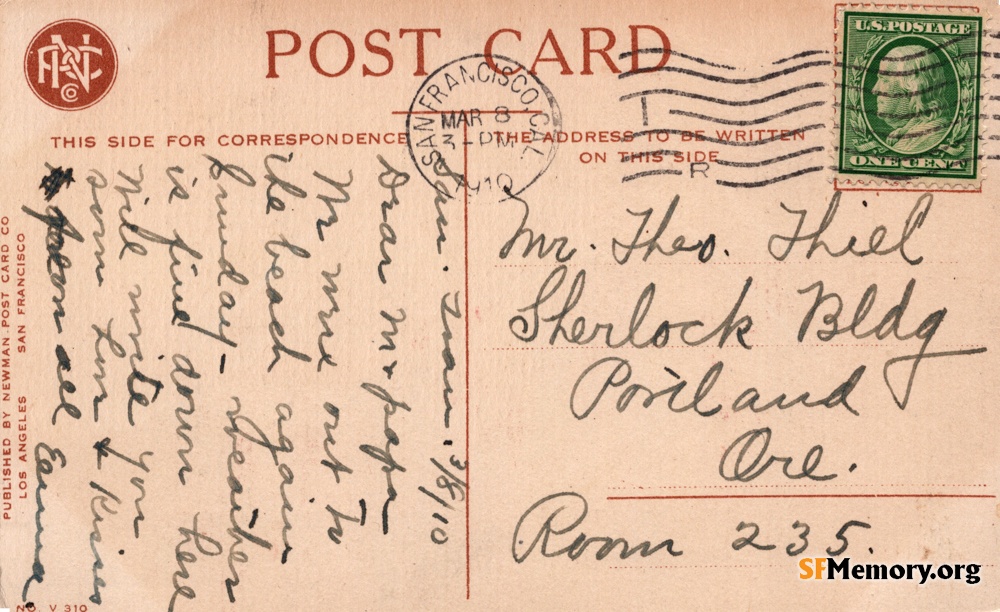 POST CARD
THIS SIDE FOR CORRESPONDENCE
THE ADDRESS TO BE WRITTEN
ON THIS SIDE
SAN FRANCISCO, CAL.
MAR 8
3 - PM
1910
R
U.S. POSTAGE
ONE CENT
San. Fran. 3/8/10
Dear Mr papa
Mr were out to
the beach again
Sunday - weather
is fine down here
Will write you
soon luv & kisses
for all Emma.
Mr. Theo. Thiel
Sherlock Bldg
Portland
Ore.
Room 235.
PUBLISHED BY NEWMAN POST CARD CO
LOS ANGELES SAN FRANCISCO
NO. V 310
SFMemory.org